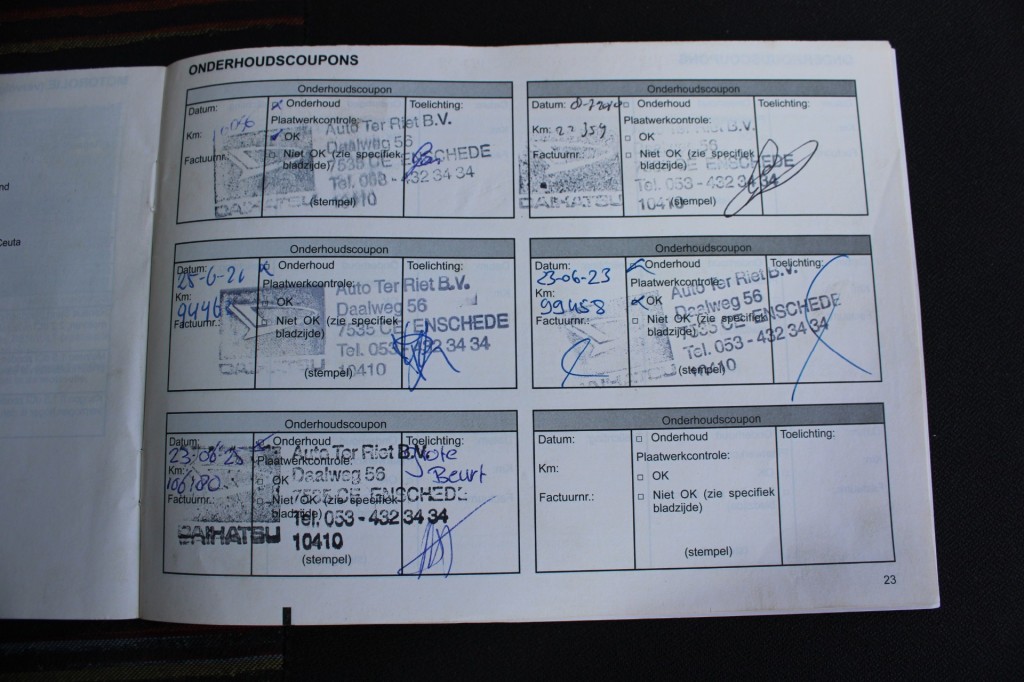 ONDERHOUDSCOUPONS
Onderhoudscoupon
Datum:
Onderhoud
Toelichting:
Plaatwerkcontrole:
Km:
OK
Factuurnr.:
Niet OK (zie specifiek
bladzijde)
(stempel)
Auto Ter Riet B.V.
Daalweg 56
7535 CE ENSCHEDE
Tel. 053 - 432 34 34
10410
DAIHATSU
Onderhoudscoupon
Datum:
Onderhoud
Toelichting:
Plaatwerkcontrole:
Km: 27359
OK
Factuurnr.:
Niet OK (zie specifiek
bladzijde)
(stempel)
B.V.
56
ENSCHEDE
Tel. 053 - 432 34 34
10410
DAIHATSU
Onderhoudscoupon
Datum:
25-6-21
Onderhoud
Toelichting:
Plaatwerkcontrole:
Km:
OK
Factuurnr.:
Niet OK (zie specifiek
bladzijde)
(stempel)
Auto Ter Riet B.V.
Daalweg 56
7535 CE ENSCHEDE
Tel. 053 - 432 34 34
10410
Onderhoudscoupon
Datum:
23-06-23
Onderhoud
Toelichting:
Plaatwerkcontrole:
Km:
99458
OK
Factuurnr.:
Niet OK (zie specifiek
bladzijde)
(stempel)
Auto Ter Riet B.V.
Daalweg 56
7535 CE ENSCHEDE
Tel. 053 - 432 34 34
10410
Onderhoudscoupon
Datum:
23-06-25
Onderhoud
Toelichting:
Grote
Beurt
Plaatwerkcontrole:
Km:
106180
OK
Factuurnr.:
Niet OK (zie specifiek
bladzijde)
(stempel)
Auto Ter Riet B.V.
Daalweg 56
7535 CE ENSCHEDE
Tel. 053 - 432 34 34
10410
DAIHATSU
Onderhoudscoupon
Datum:
Onderhoud
Toelichting:
Plaatwerkcontrole:
Km:
OK
Factuurnr.:
Niet OK (zie specifiek
bladzijde)
(stempel)
23